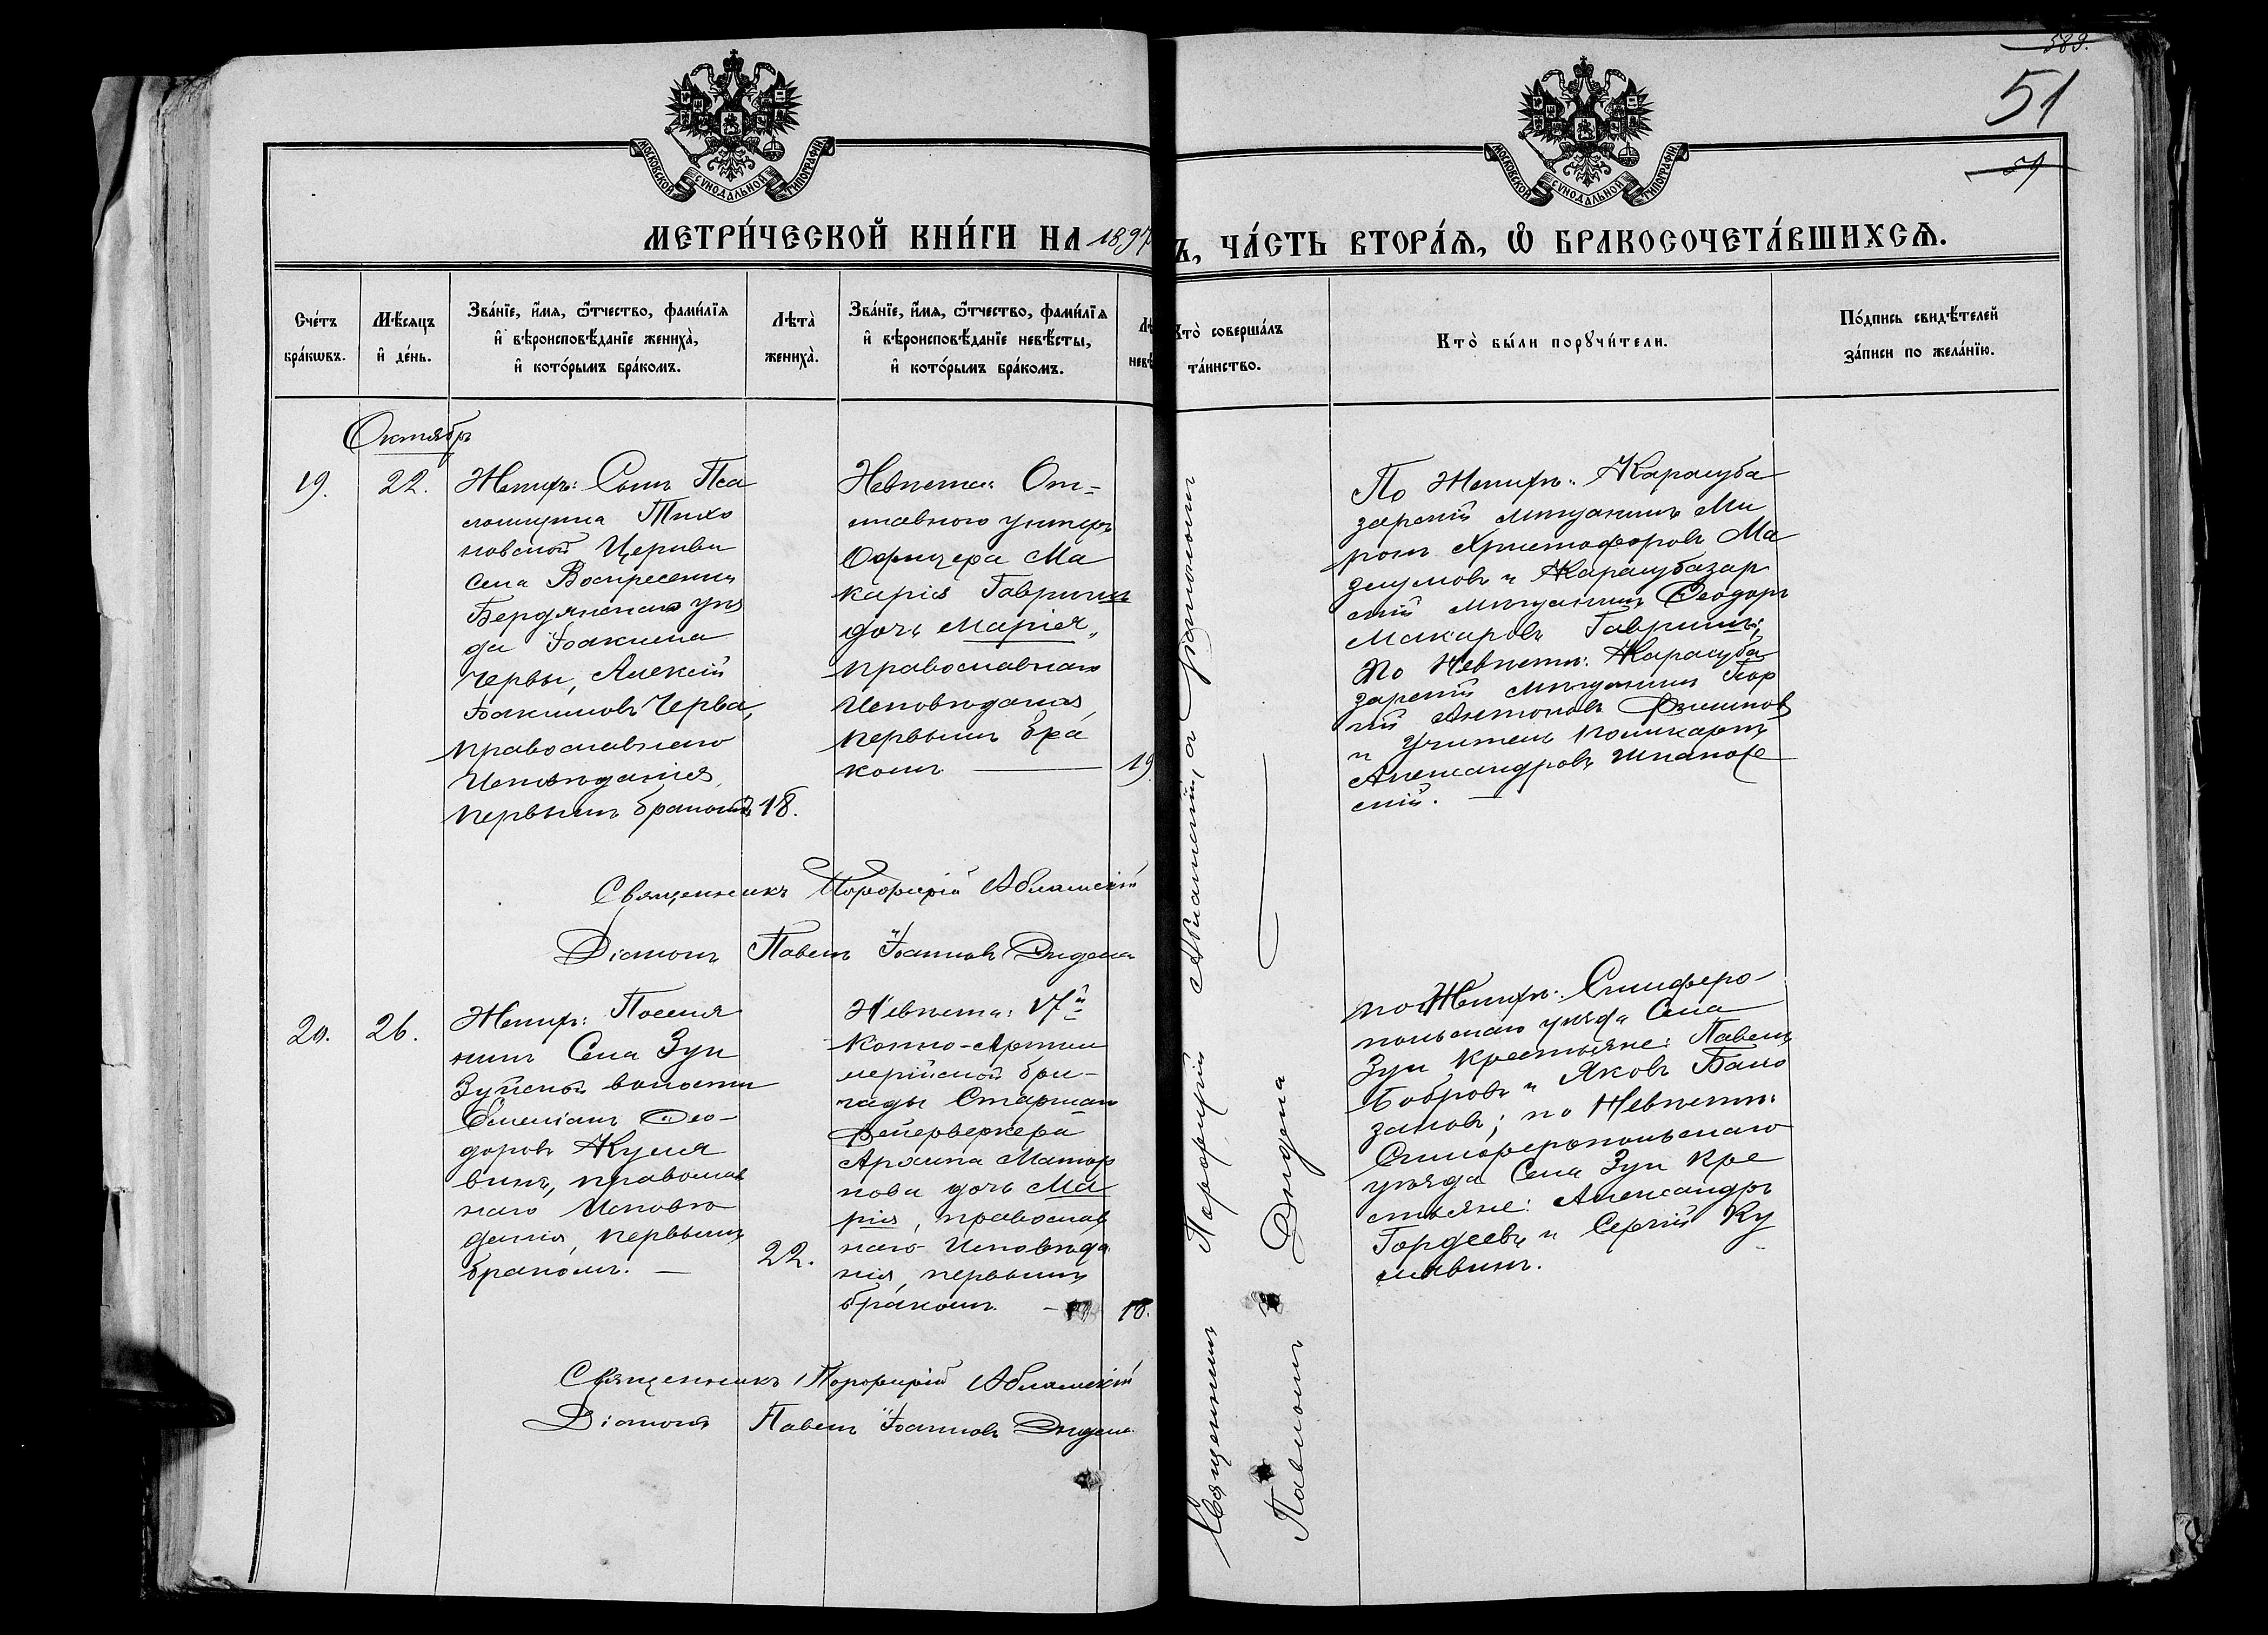 589.
51
51
МОСКОВСКОЙ СѴНОДАЛЬНОЙ ТИПОГРАФІИ
МОСКОВСКОЙ СѴНОДАЛЬНОЙ ТИПОГРАФІИ
МЕТРИ́ЧЕСКОЙ КНИ́ГИ НА 1897
Ъ, ЧА́СТЬ ВТОРА́Ѧ, Ѡ҆ БРАКОСОЧЕТА́ВШИХСѦ.
Сче́тъ
бра́кѡвъ.
Мѣ́сяцъ
и҆ де́нь.
Зва́нїе, и҆́мя, ѻ҆́тчество, фами́лїя
и҆ вѣроисповѣ́данїе жениха̀,
и҆ кото́рымъ бра́комъ.
Лѣта̀
жениха̀.
Зва́нїе, и҆́мя, ѻ҆́тчество, фами́лїя
и҆ вѣроисповѣ́данїе невѣ́сты,
и҆ кото́рымъ бра́комъ.
Лѣ
невѣ
Кто̀ соверша́лъ
та́инство.
Кто̀ бы́ли порꙋчи́тели.
По́дпись свидѣ́телей
за́писи по жела́нїю.
Октябрь
19.
22.
Женихъ: Сынъ Пса
ломщика Тихо
новской Церкви
Села Воскресенки
Бердянскаго уѣз
да Іоакима
Червы, Алексій
Іоакимовъ Черва,
православнаго
Исповѣданія,
первымъ бракомъ
18.
Невѣста: От-
ставного унтеръ
Офицера Ма
карія Гавриша
дочь Марія,
православнаго
Исповѣданія,
первымъ бра
комъ
19.
По Женихѣ: Карасуба
зарскій мѣщанинъ Ми
ронъ Христофоровъ Ма
и Карасубазар
скій мѣщанинъ Ѳеодоръ
Макаровъ Гавришъ;
По Невѣстѣ: Карасуба
зарскій мѣщанинъ Геор
гій Антоновъ
и Учитель Поликарпъ
Александровъ
скій.
Священникъ Порфирій
Діаконъ Павелъ Іоанновъ Дидена
20.
26.
Женихъ: Поселя
нинъ Села Зуи
Зуйской волости
Емеліанъ Ѳео-
доровъ Куля
винъ, православ
наго Исповѣ
данія, первымъ
бракомъ.
22.
Невѣста: 17й
Конно-Артил
лерійской бри-
гады Старшаго
Фейерверкера
Архипа Матор
нова дочь Ма
рія, православ
наго Исповѣда
нія, первымъ
бракомъ.
18.
по Женихѣ: Симферо-
польскаго уѣзда Села
Зуи крестьяне: Павелъ
Бобровъ и Яковъ Бало
; по Невѣстѣ:
Симферопольскаго
уѣзда Села Зуи кре
стьяне: Александръ
Гордеевъ и Сергій Ку
лявинъ.
Священникъ Порфирій
Діаконъ Павелъ Іоанновъ Дидена
Священникъ Порфирій съ Діакономъ
Павломъ Дидена